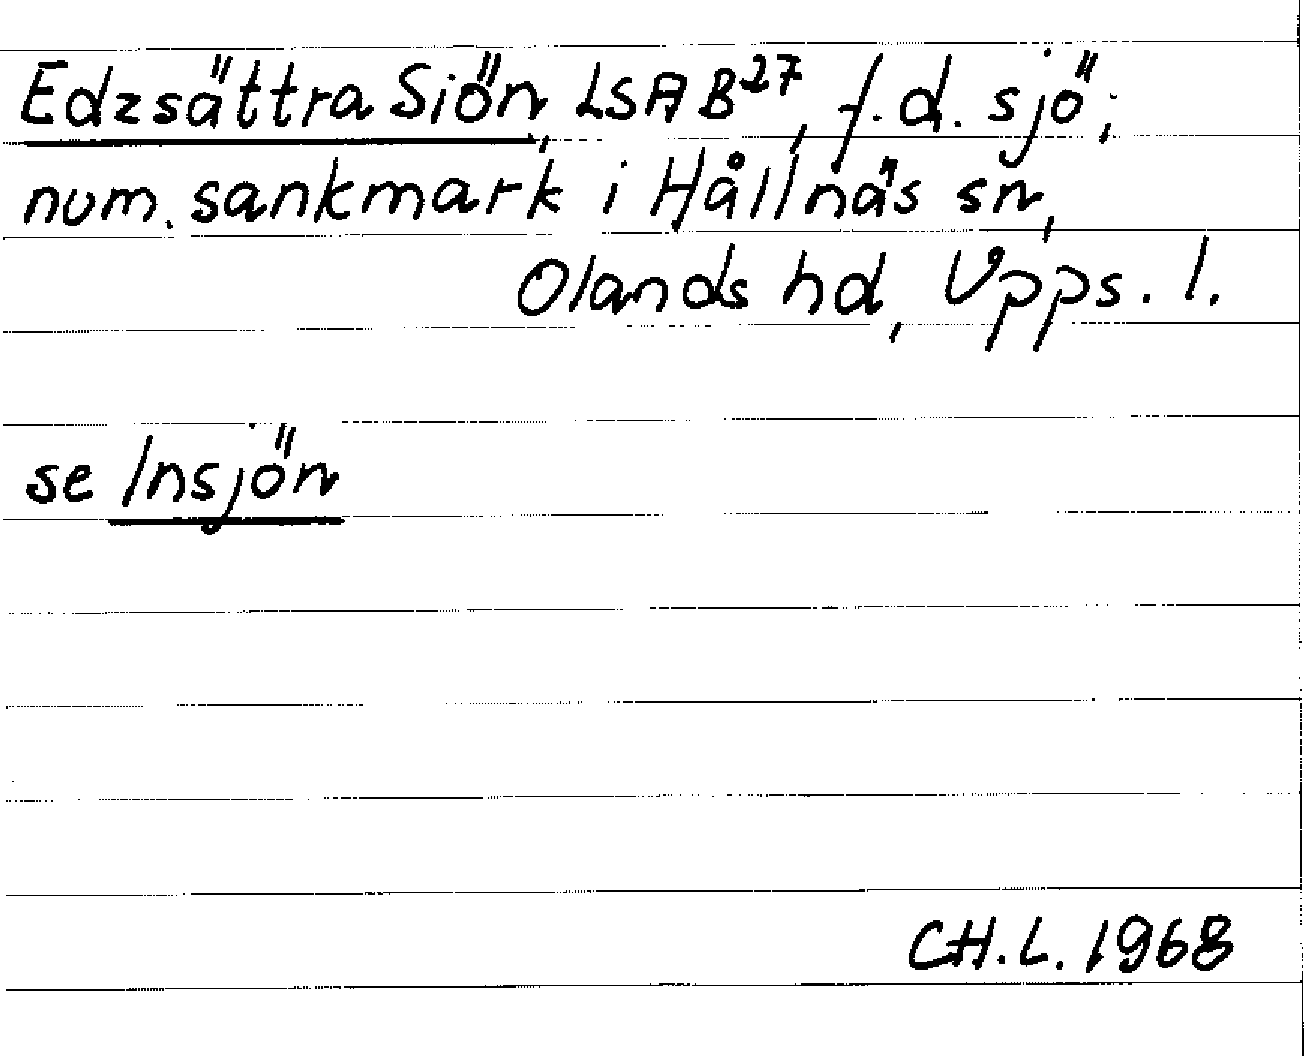 Edzsättra Siön, LSA B27, f.d. sjö;
num. sankmark i Hållnäs sn,
Olands hd, Upps. l.
se Insjön
CH.L. 1968